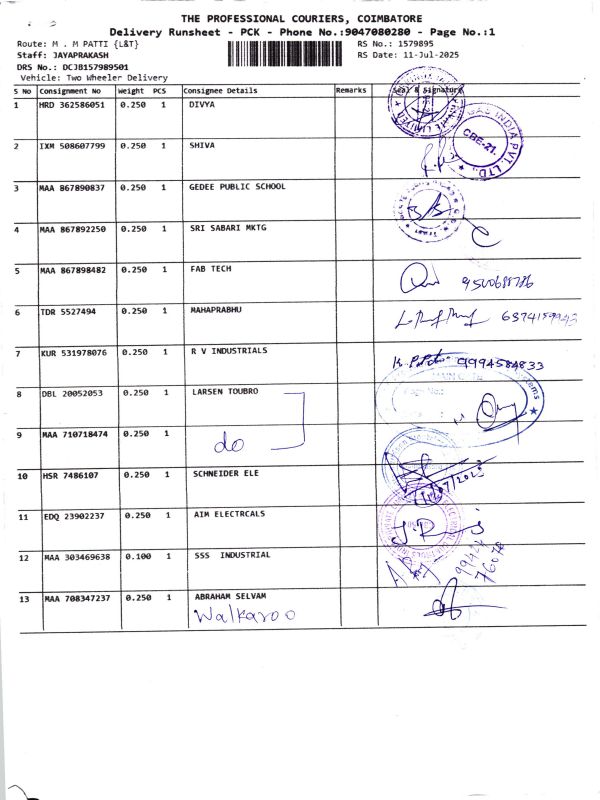 THE PROFESSIONAL COURIERS, COIMBATORE
Delivery Runsheet - PCK - Phone No.:9047080280 - Page No.:1
Route: M . M PATTI {L&T} RS No.: 1579895
Staff: JAYAPRAKASH RS Date: 11-Jul-2025
DRS No.: DCJB157989501
Vehicle: Two Wheeler Delivery
S No Consignment No Weight PCS Consignee Details Remarks Seal & Signature
1 HRD 362586051 0.250 1 DIVYA
2 IXM 508607799 0.250 1 SHIVA
GAS INDIA PVT. LTD.
CBE-21.
3 MAA 867890837 0.250 1 GEDEE PUBLIC SCHOOL
4 MAA 867892250 0.250 1 SRI SABARI MKTG
5 MAA 867898482 0.250 1 FAB TECH
6 TDR 5527494 0.250 1 MAHAPRABHU
7 KUR 531978076 0.250 1 R V INDUSTRIALS 9994584833
8 DBL 20052053 0.250 1 LARSEN TOUBRO
9 MAA 710718474 0.250 1 do
10 HSR 7486107 0.250 1 SCHNEIDER ELE
11 EDQ 23902237 0.250 1 AIM ELECTRCALS
12 MAA 303469638 0.100 1 SSS INDUSTRIAL
13 MAA 708347237 0.250 1 ABRAHAM SELVAM
Walkaroo